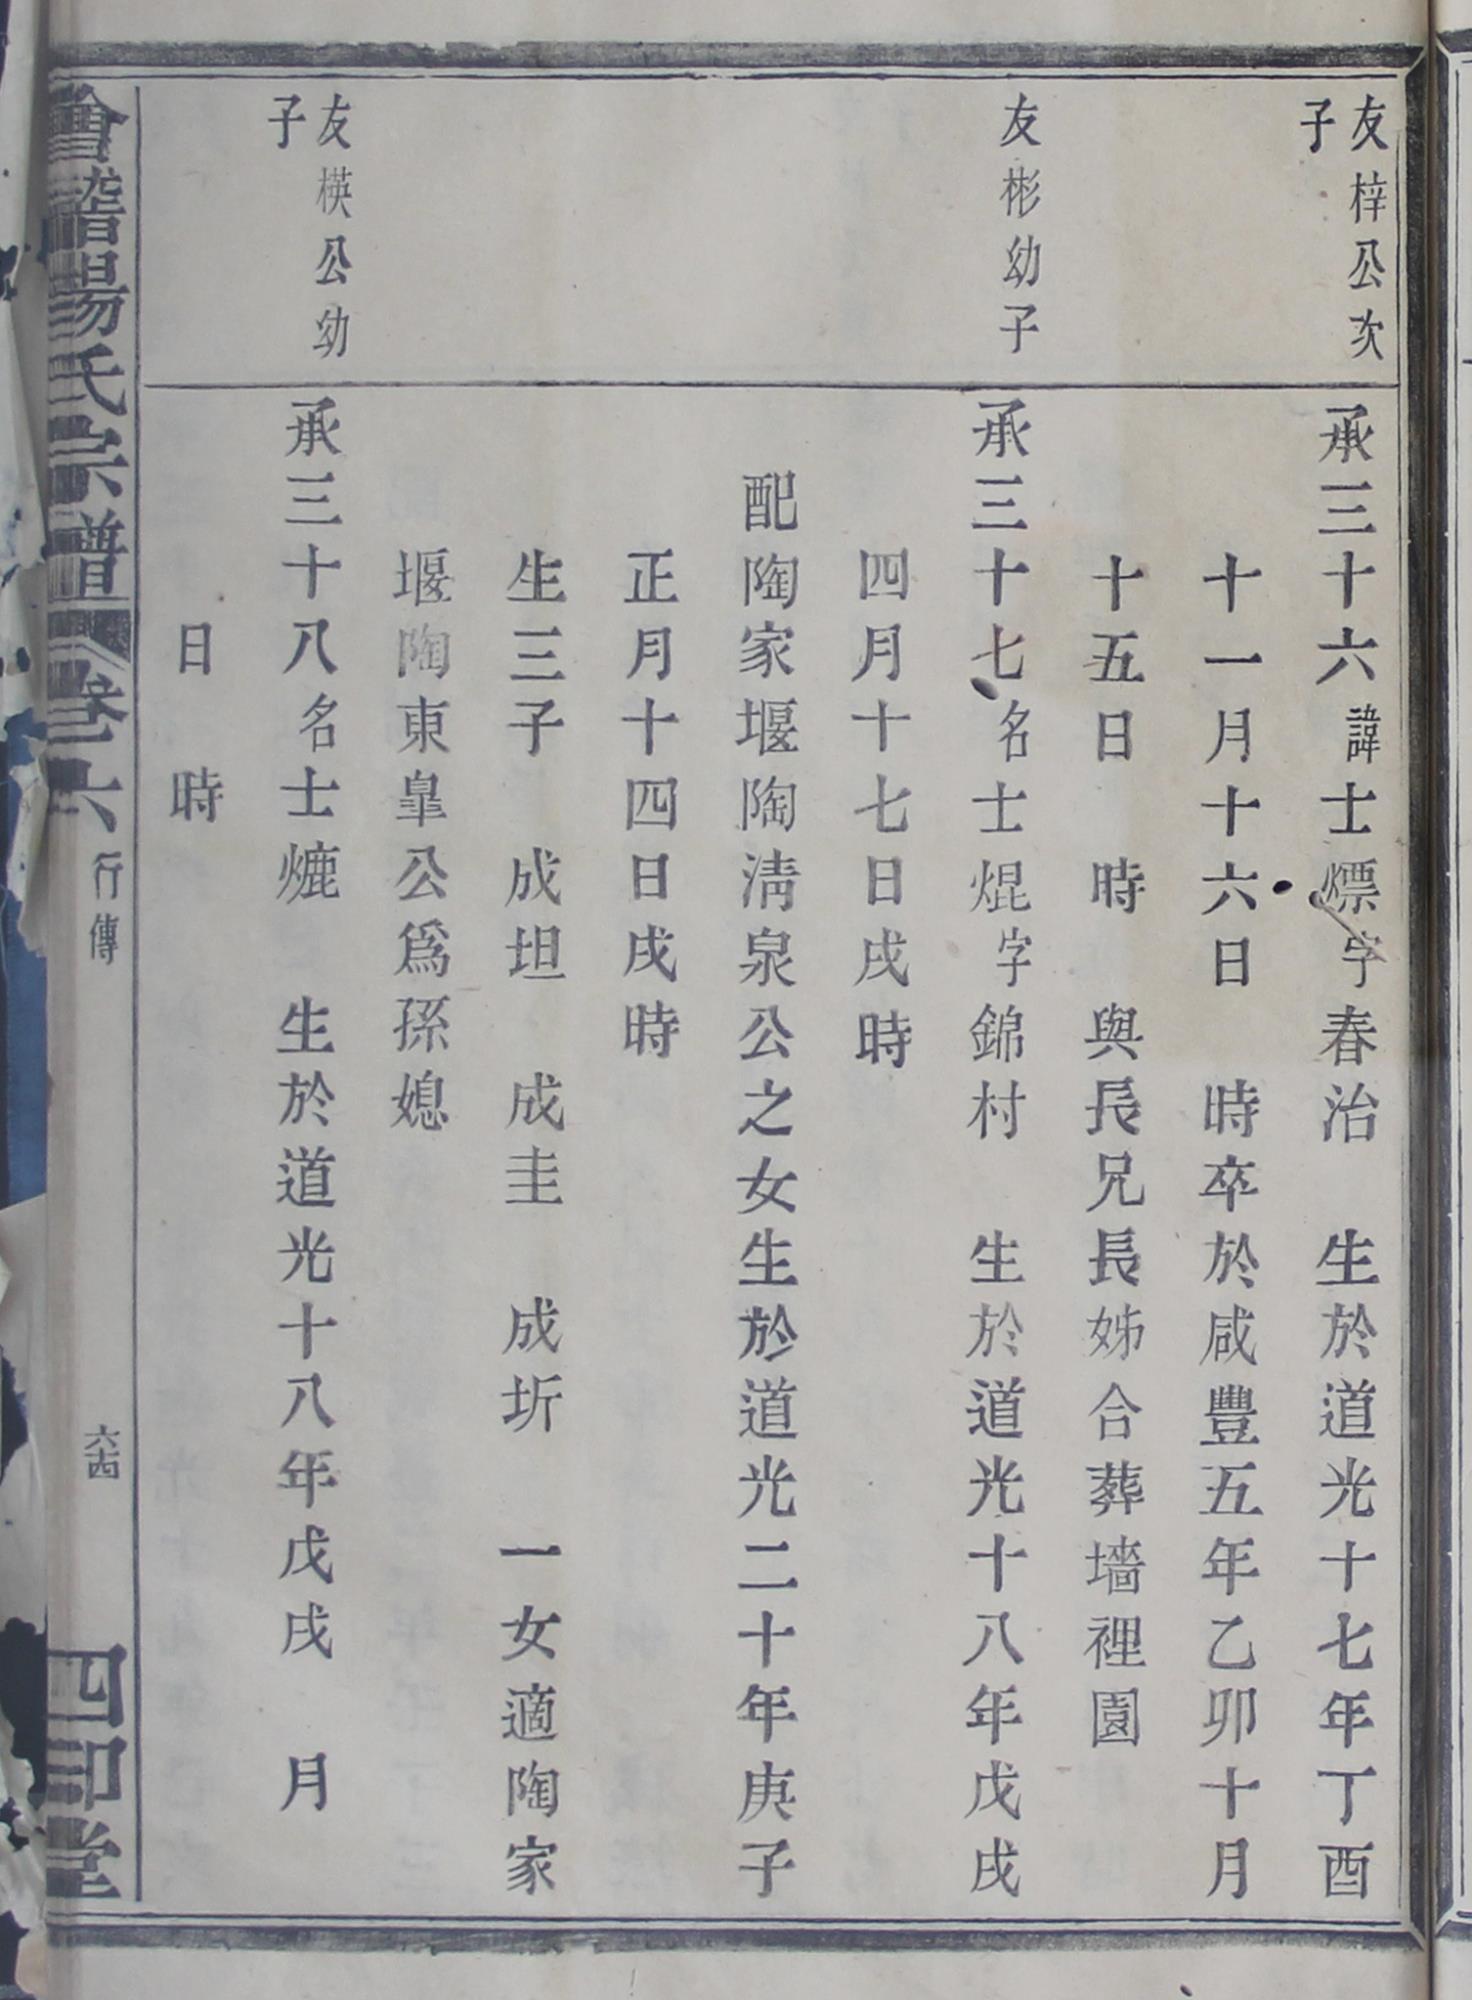 友梓公次
子
承三十六諱士熛字春治　生於道光十七年丁酉
十一月十六日　時卒於咸豐五年乙卯十月
十五日　時　與長兄長姊合葬墻裡園
友彬幼子
承三十七名士焜字錦村　生於道光十八年戊戌
四月十七日戌時
配陶家堰陶淸泉公之女生於道光二十年庚子
正月十四日戌時
生三子　成坦　成圭　成圻　一女適陶家
堰陶東臯公爲孫媳
友楧公幼
子
承三十八名士熝　生於道光十八年戊戌　月
日　時
會稽楊氏宗譜　卷六　行傳　六十四　四印堂